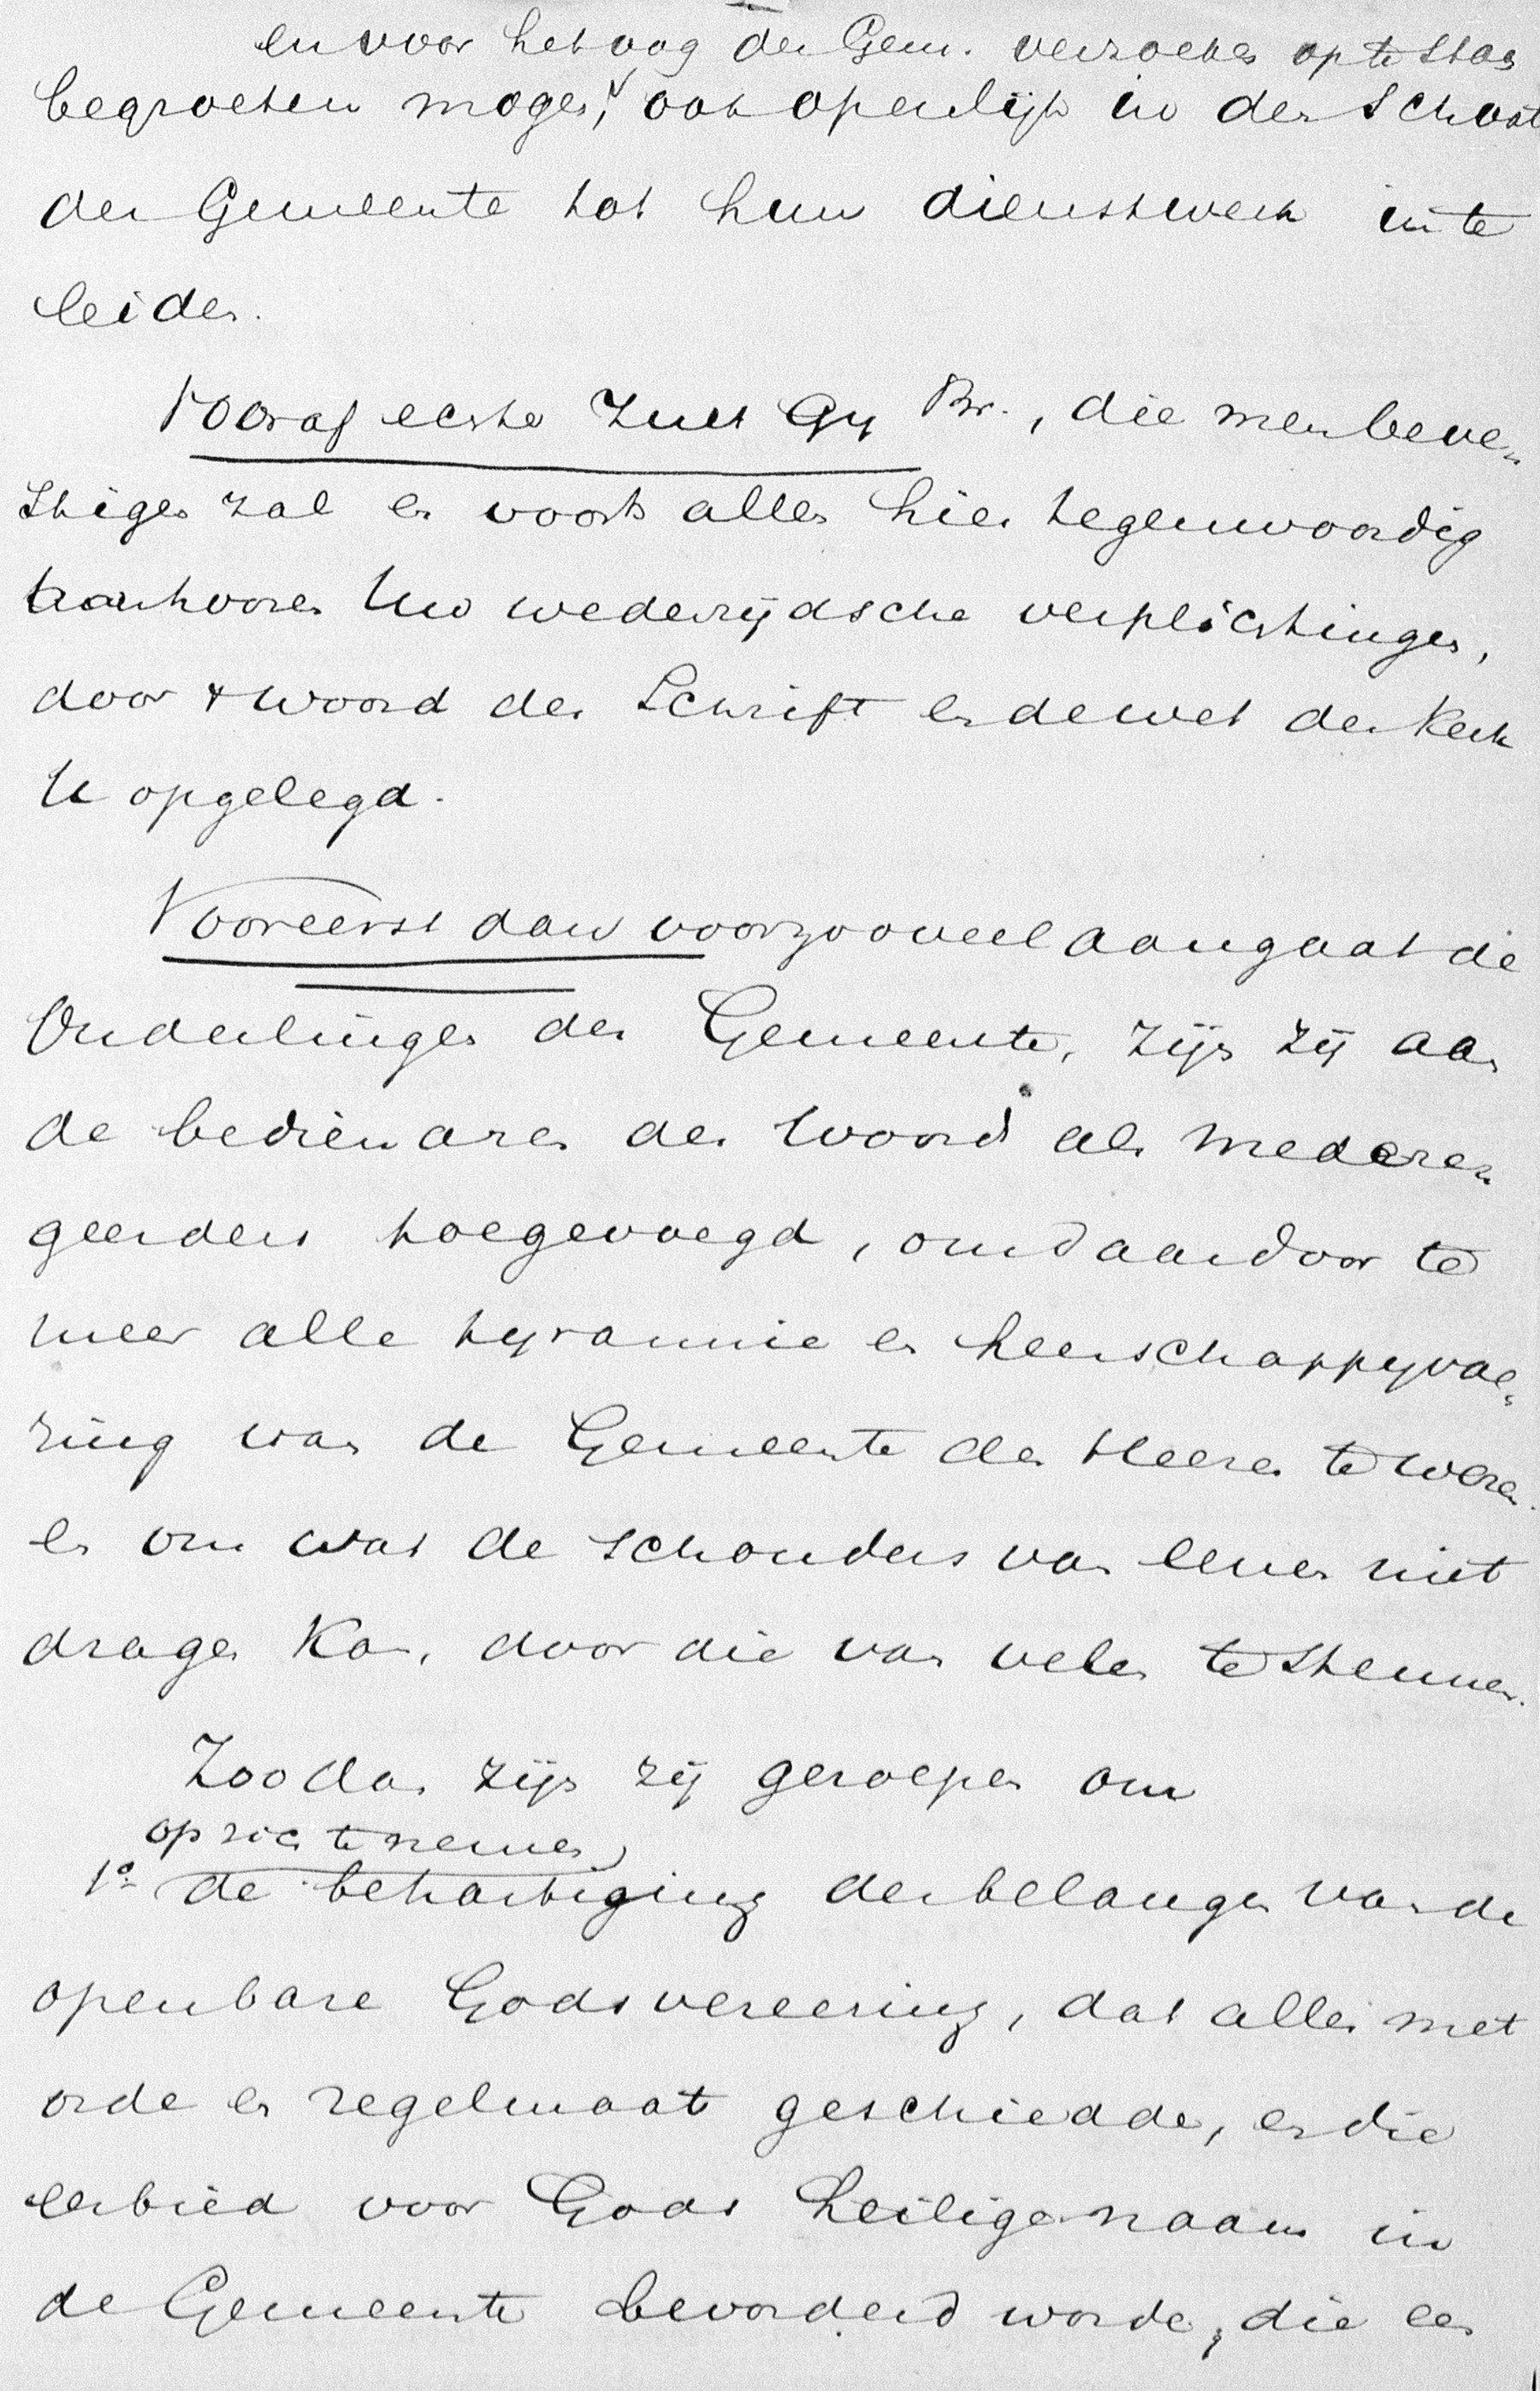 en voor het oog der Gem. verzoeken op te staan
begroeten mogen, ook openlijk in den schoot
der Gemeente tot hun dienstwerk in te
leiden.
Vooraf echter zult Gij Br., die men beve-
stigen zal en voorts allen hier tegenwoordig
aanhooren Uw wederzijdsche verplichtingen,
door 't woord der Schrift en de wet der Kerk
U opgelegd.
Vooreerst dan voorzooveel aangaat de
Ouderlingen der Gemeente, zijn zij aan
de bedienaren des Woords als medere-
geerders toegevoegd, om daardoor te
meer alle tyrannie en heerschappijvoe-
ring van de Gemeente des Heeren te weren
en om wat de schouders van eenen niet
dragen kan, door die van velen te steunen.
Zoo dan zijn zij geroepen om
op zich te nemen
1o de behartiging der belangen van de
openbare Godsvereering, dat alles met
orde en regelmaat geschiedde, en die
eerbied voor Gods heiligen naam in
de Gemeente bevorderd worde, die een